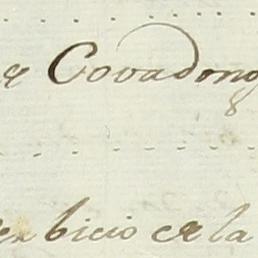 de Covadong
en bicio de la